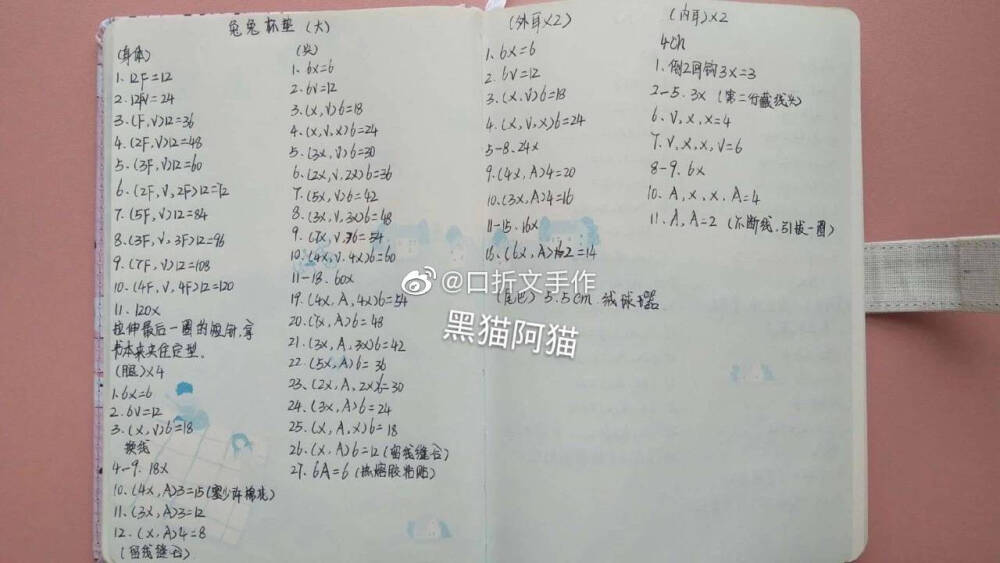 兔兔杯垫（大）
（身体）
1. 12F=12
2. 12FV=24
3. (F,V)12=36
4. (2F,V)12=48
5. (3F,V)12=60
6. (2F,V,2F)12=72
7. (5F,V)12=84
8. (3F,V,3F)12=96
9. (7F,V)12=108
10. (4F,V,4F)12=120
11. 120x
拉伸最后一圈的短针,拿
书本来夹住定型.
（腿）x4
1. 6x=6
2. 6V=12
3. (x,V)6=18
换线
4-9. 18x
10. (4x,A)3=15(塞少许棉花)
11. (3x,A)3=12
12. (x,A)4=8
（留线缝合）
（头）
1. 6x=6
2. 6V=12
3. (x,V)6=18
4. (x,V,x)6=24
5. (3x,V)6=30
6. (2x,V,2x)6=36
7. (5x,V)6=42
8. (3x,V,3x)6=48
9. (7x,V)6=54
10. (4x,V,4x)6=60
11-18. 60x
19. (4x,A,4x)6=54
20. (7x,A)6=48
21. (3x,A,3x)6=42
22. (5x,A)6=36
23. (2x,A,2x)6=30
24. (3x,A)6=24
25. (x,A,x)6=18
26. (x,A)6=12(留线缝合)
27. 6A=6(热熔胶粘贴)
（外耳x2）
1. 6x=6
2. 6V=12
3. (x,V)6=18
4. (x,V,x)6=24
5-8. 24x
9. (4x,A)4=20
10. (3x,A)4=16
11-15. 16x
16. (6x,A)2=14
（尾巴）5.5cm 绒球器
（内耳）x2
4ch
1. 倒2回钩3x=3
2-5. 3x（第二行藏线头）
6. V,x,x=4
7. V,x,x,V=6
8-9. 6x
10. A,x,x,A=4
11. A,A=2（不断线,引拔一圈）
@口折文手作
黑猫阿猫